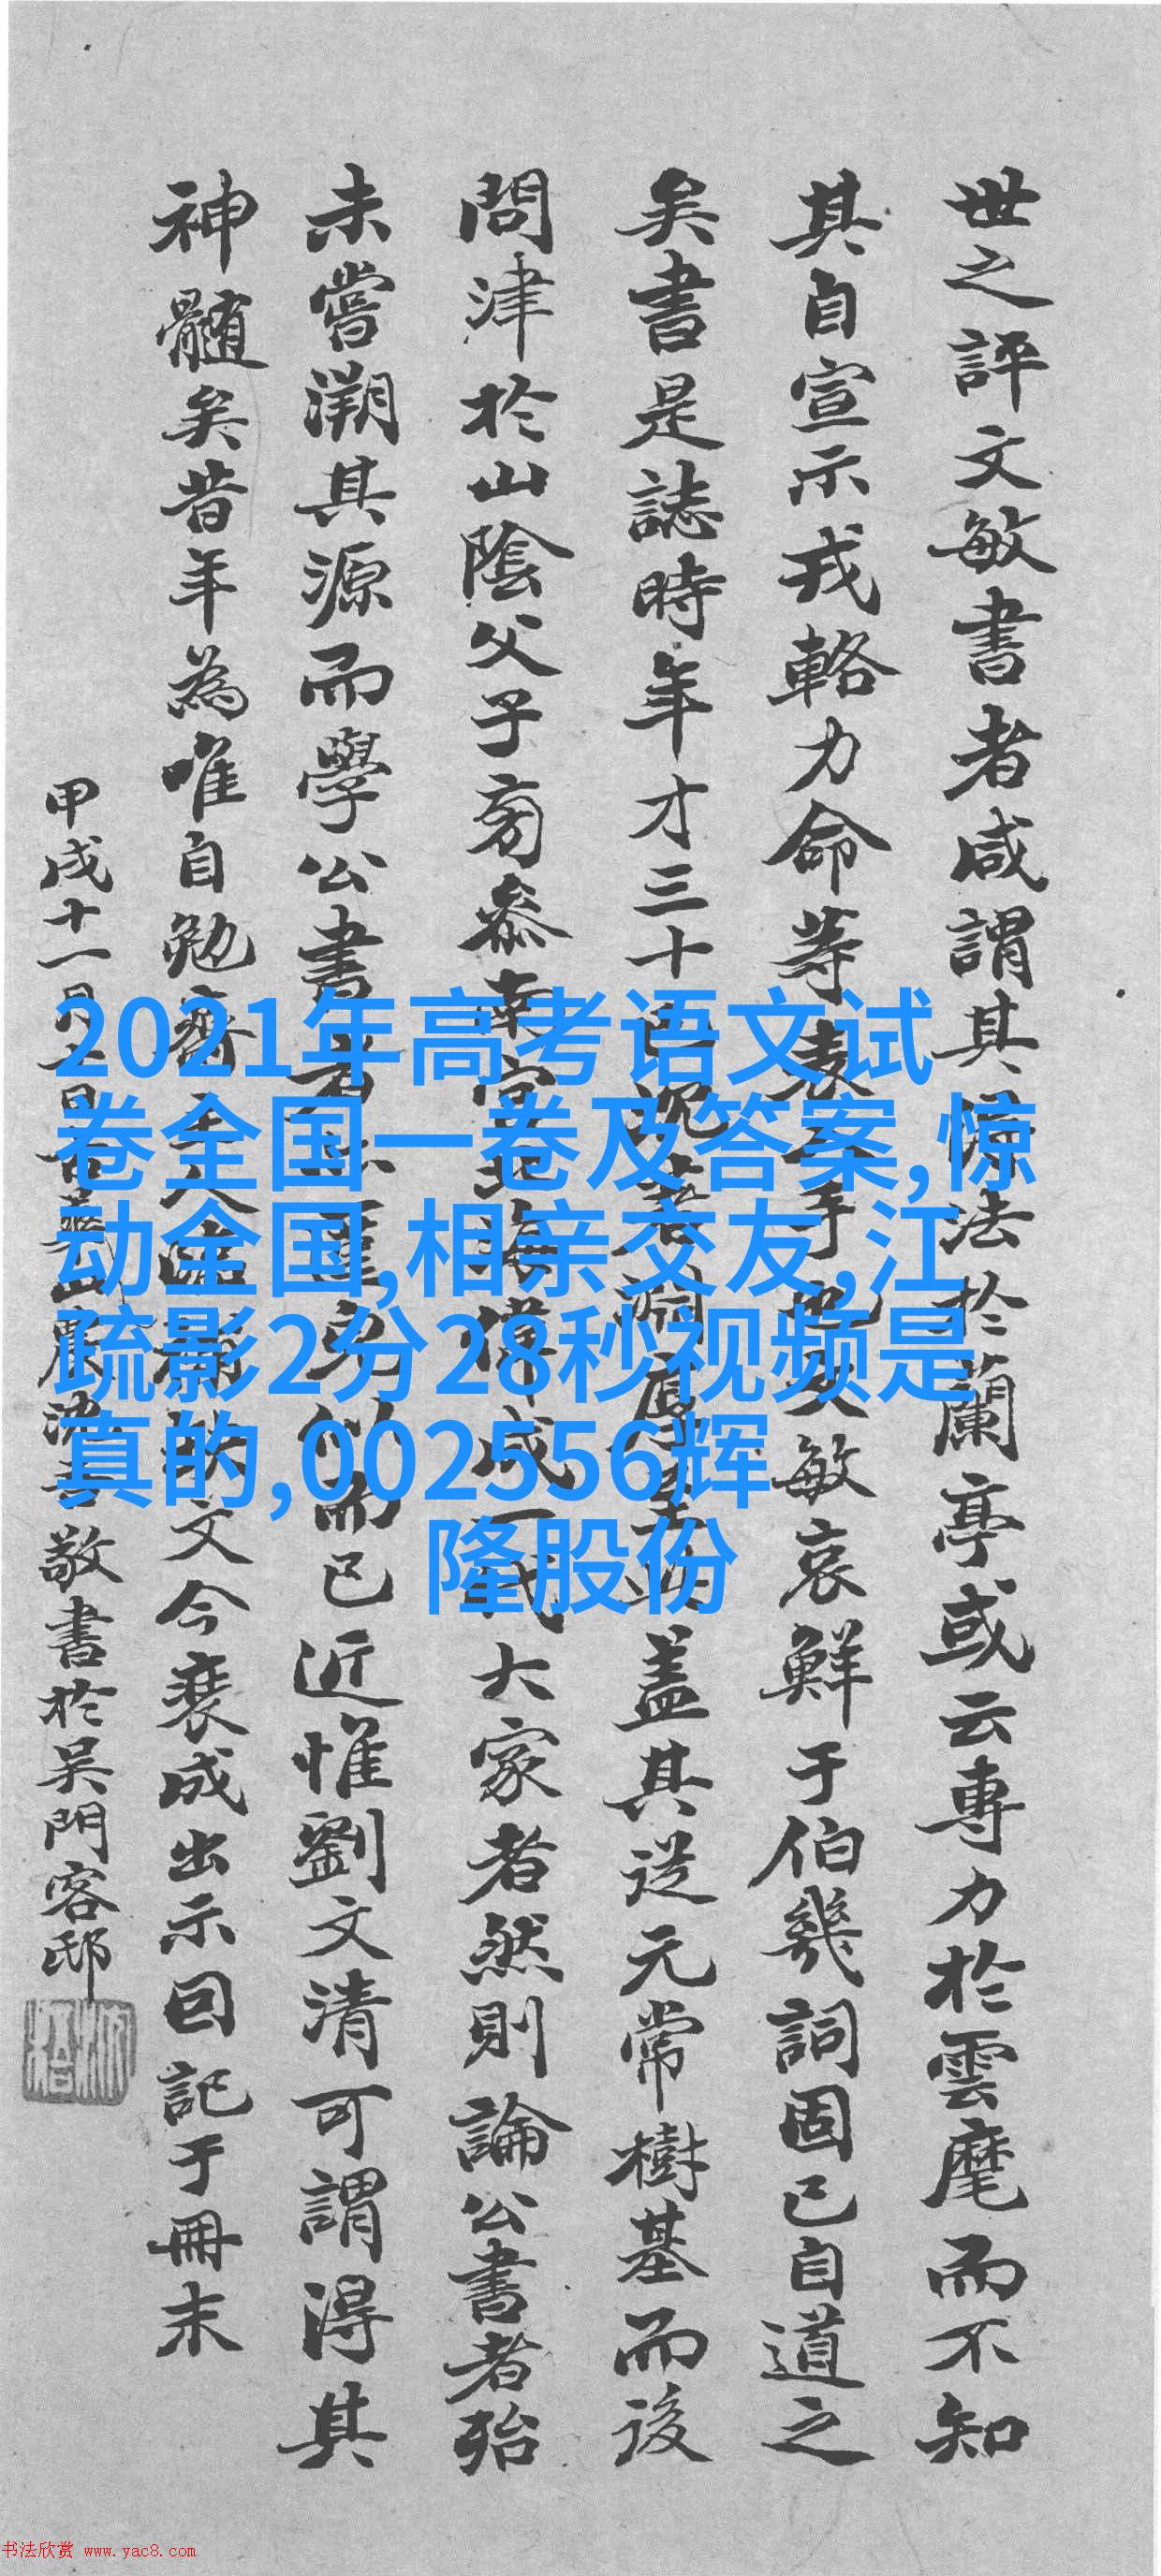 世之評文敏書者咸謂其法於蘭亭或云專力於雲麾而不知
其自宣示戎輅力命等表文敏哀鮮于伯幾詞固已自道之
矣書是誌時年才三十蓋其從元常樹基而後
問津於山陰父子旁參南成一代大家者然則論公書者殆
未嘗溯其源而學公書而已近惟劉文清可謂得其
神髓矣昔年為唯自勉齋文今裴成出示回記于冊末
甲戌十一月敬書於吴門客邸
2021年高考语文试
卷全国一卷及答案,惊
动全国,相亲交友,江
疏影2分28秒视频是
真的,002556辉
隆股份
书法欣赏 www.yac8.com